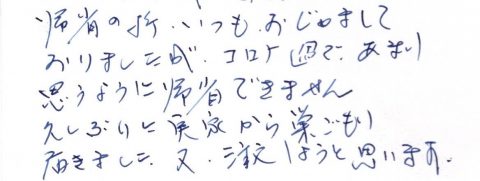 帰省の折、いつも、おじゃまして
おりましたが、コロナ過で、あまり
思うように帰省できません
久しぶりに実家から巣ごもり
届きました。又、注文しようと思います。